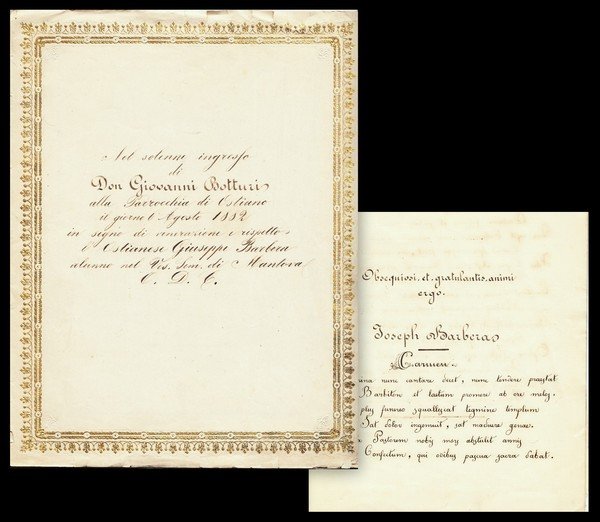 Nel solenne ingresso
di
Don Giovanni Botturi
alla Parrocchia di Ostiano
il giorno 6 Agosto 1882
in segno di venerazione e rispetto
l' Ostianese Giuseppe Barbera
alunno nel Ves. Sem. di Mantova
O. D. C.
Obsequiosi, et gratulantis animi
ergo.
Joseph Barbera
Carmen.
nunc cantare decet, nunc tendere praestat
Barbiton et laetum promere ab ore melos.
funereo squallescat tegmine templum
Sat dolor ingemuit, sat maduere genae.
Pastorem nobis mors abstulit annis
Confectum, qui ovibus pascua sacra dabat.